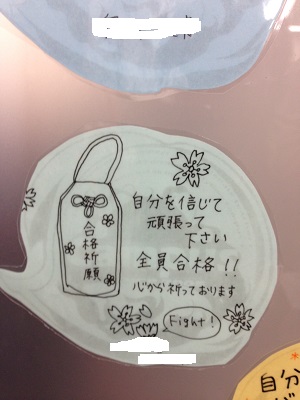 合格祈願
自分を信じて
頑張って
下さい
全員合格!!
心から祈っております
Fight!
自分